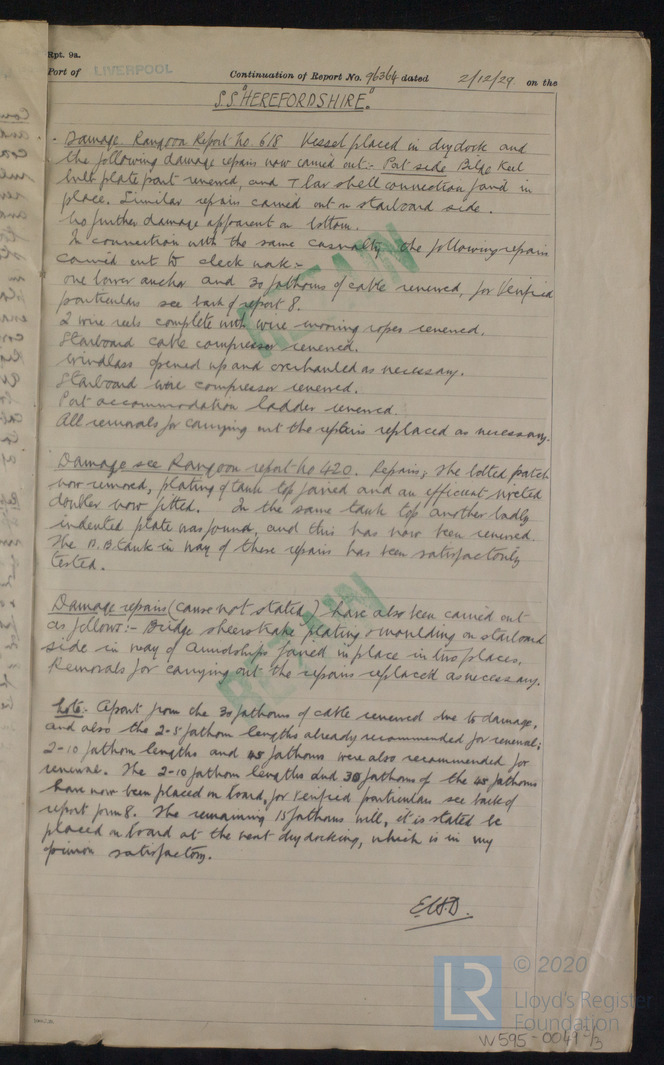 Rpt. 9a.
Port of LIVERPOOL Continuation of Report No. 96364 dated 2/12/29 on the
S.S. "HEREFORDSHIRE."
Damage. Rangoon Report No. 618 Vessel placed in drydock and
the following damage repairs now carried out:- Port side Bilge Keel
bulb plate part renewed, and T bar shell connection faired in
place. Similar repairs carried out on starboard side.
No further damage apparent on bottom.
In connection with the same casualty the following repairs
carried out to deck work:-
one bower anchor and 30 fathoms of cable renewed, for Verified
particulars see back of report 8.
2 wire reels complete with wire mooring ropes renewed.
Starboard cable compressor renewed.
Windlass opened up and overhauled as necessary.
Starboard wire compressor renewed.
Port accommodation ladder renewed.
All removals for carrying out the repairs replaced as necessary.
Damage see Rangoon report No 420. Repairs; The bolted patch
now removed, plating of tank top faired and an efficient riveted
doubler now fitted. In the same tank top another badly
indented plate was found, and this has now been renewed.
The D.B. tank in way of these repairs has been satisfactorily
tested.
Damage repairs (cause not stated) have also been carried out
as follows:- Bridge sheerstrake plating & moulding on starboard
side in way of amidships faired in place in two places.
Removals for carrying out the repairs replaced as necessary.
Note:- Apart from the 30 fathoms of cable renewed due to damage,
and also the 2-5 fathom lengths already recommended for renewal;
2-10 fathom lengths and 45 fathoms were also recommended for
renewal. The 2-10 fathom lengths and 30 fathoms of the 45 fathoms
have now been placed on board, for verified particulars see back of
report form 8. The remaining 15 fathoms will, it is stated be
placed on board at the next dry docking, which is in my
opinion satisfactory.
E.W.D.
RETAIN
RETAIN
LR © 2020
Lloyd's Register
Foundation
W595-0049 3/3